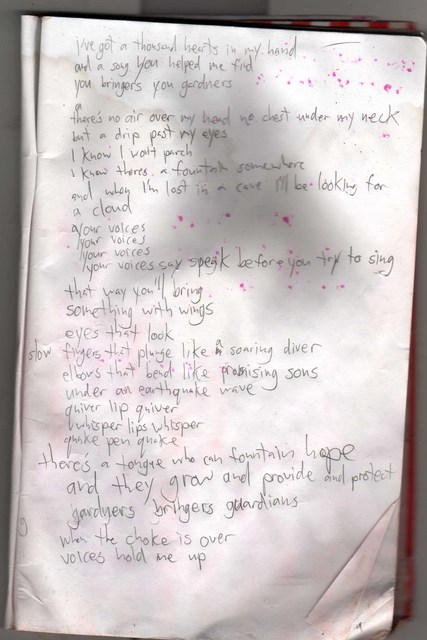 I've got a thousand hearts in my hand
and a song you helped me find
you bringers you gardners
a
there's no air over my head no chest under my neck
but a drip past my eyes
I know I won't parch
I know theres a fountain somewhere
and when I'm lost in a cave I'll be looking for
a cloud
your voices
your voices
your voices
your voices say speak before you try to sing
that way you'll bring
something with wings
eyes that look
slow fingers that plunge like a soaring diver
elbows that bend like promising sons
under an earthquake wave
quiver lip quiver
whisper lips whisper
quake pen quake
there's a tongue who can fountain hope
and they grow and provide and protect
gardners bringers guardians
when the choke is over
voices hold me up